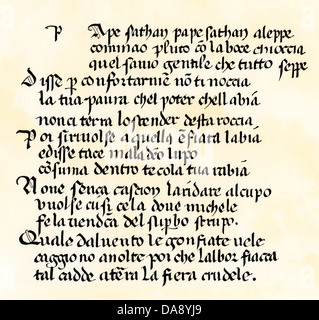 P Ape sathan pape sathan aleppe
cominao pluto cō la boce chioccia
quel savio gentile che tutto seppe
Disse p confortarme nō ti noccia
la tua paura chel poter chell abia
non ci terra lo scender desta roccia
Poi si rivolse a quella ēfiata labia
e disse tace maladcō lupo
cōsuma dentro te cola tua rabia
None senza casion laridare alcupo
vuolse cusi cela dove michele
fe la uendca del supbo strupo.
Quale dal uento le gonfiate uele
caggiono anolte poi che lalbor fiacca
tal cadde atera la fiera crudele.
DA8YJ9